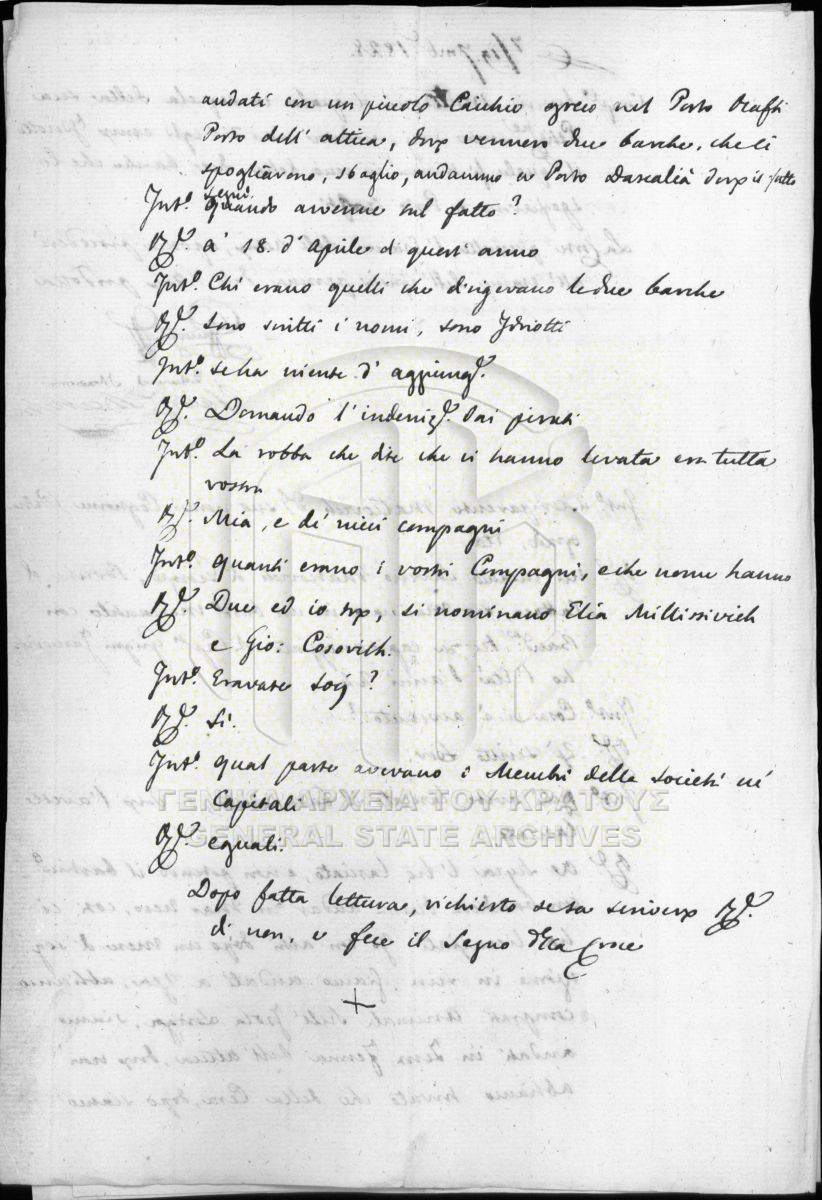 andati con un piccolo Caichio greco nel Porto Rafti
Porto dell' attica, dove vennero due barche, che ci
spogliarono, sbaglio, andammo a Porto Dascalià dove il fatto
seguì.
Intº. quando avvenne sul fatto?
Rᵈ. à 18. d' Aprile d quest' anno
Intº. Chi erano quelli che dirigevano le due barche
Rᵈ. Sono scritti i nomi, sono Idriotti
Intº. se ha niente d' aggiung.
Rᵈ. Domando l' indeniz. dai pirati
Intº. La robba che dite che vi hanno levata era tutta
vostra
Rᵈ. Mia, e di miei compagni
Intº. quanti erano i vostri Compagni, e che nome hanno
Rᵈ. Due ed io tre, si nominano Elia Millissivich
e Gio: Cosovich.
Intº. Eravate Socj?
Rᵈ. Si.
Intº. qual parte avevano i Membri della Società né
Capitali
Rᵈ. eguali.
Dopo fatta lettura, richiesto se sa scrivere Rᵈ.
di non, e fece il Segno della Croce
+
ΓΕΝΙΚΑ ΑΡΧΕΙΑ ΤΟΥ ΚΡΑΤΟΥΣ
GENERAL STATE ARCHIVES